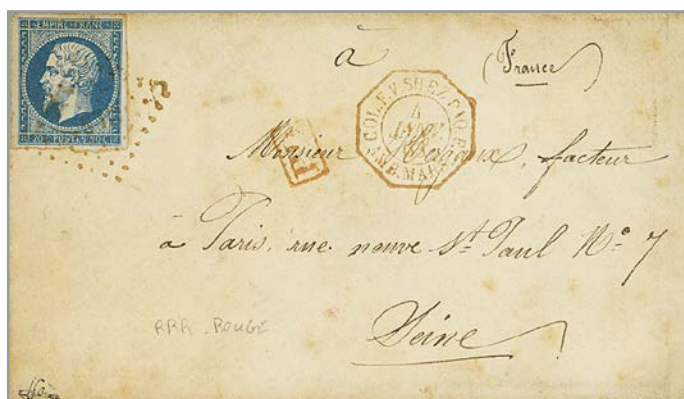 EMPIRE FRANC
20 c POSTES 20 c
à
(France)
COL. F. V. SUEZ PAQ. F.
4
Monsieur facteur
à Paris, rue neuve St Paul No 7
Seine
RRR - ROUGE